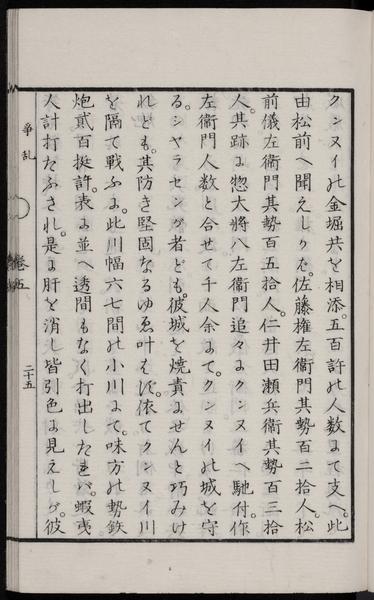 クンヌイの金堀共を相添。五百許の人数にて支へ。此
由松前へ聞えしかは。佐藤権左衛門其勢百二拾人。松
前儀左衛門其勢百五拾人。仁井田瀬兵衛其勢百三拾
人。其跡に惣大将八左衛門追々にクンヌイへ馳付。作
左衛門人数と合せて千人余にて。クンヌイの城を守
る。シヤラセンゲ者ども。彼城を焼責にせんと巧みけ
れども。其防き堅固なるゆゑ叶はず。依てクンヌイ川
を隔て戦ふに。此川幅六七間の小川にて。味方の勢鉄
炮貳百挺許。表に並へ透間もなく打出したれバ。蝦夷
人計打たふされ。是に肝を消し皆引色に見えしが。彼
争乱
巻五
二十五